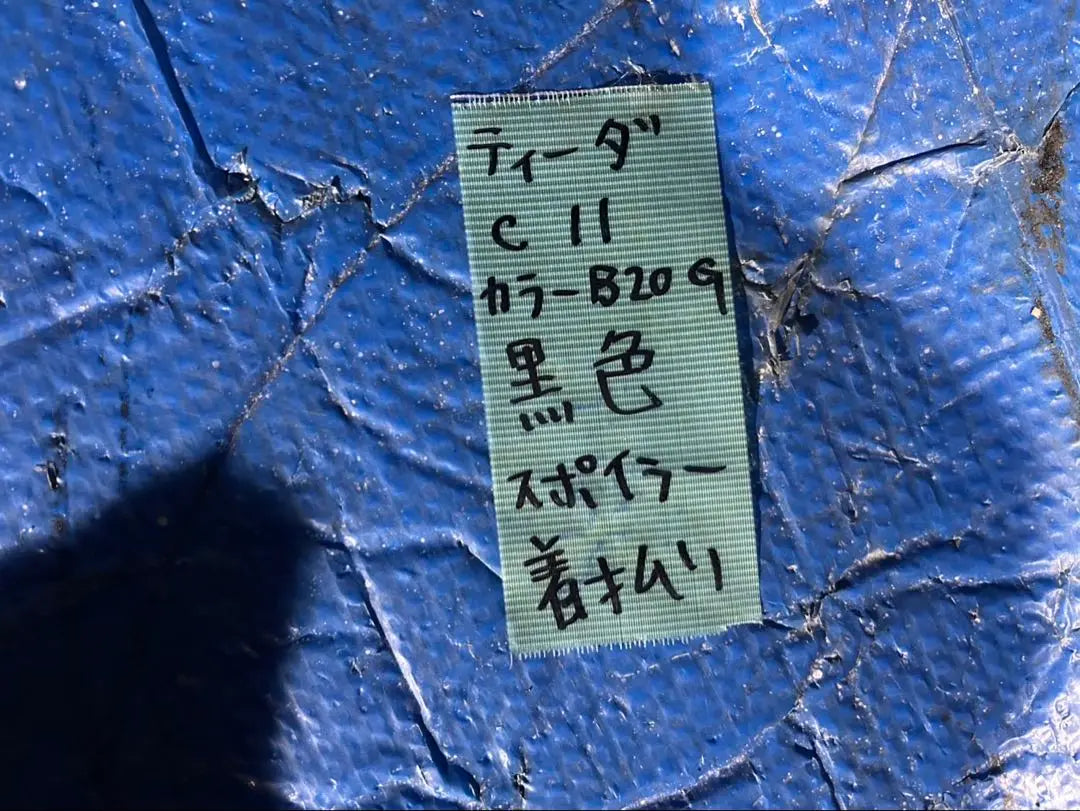 ティーダ
C 11
カラーB20G
黒色
スポイラー
着払い